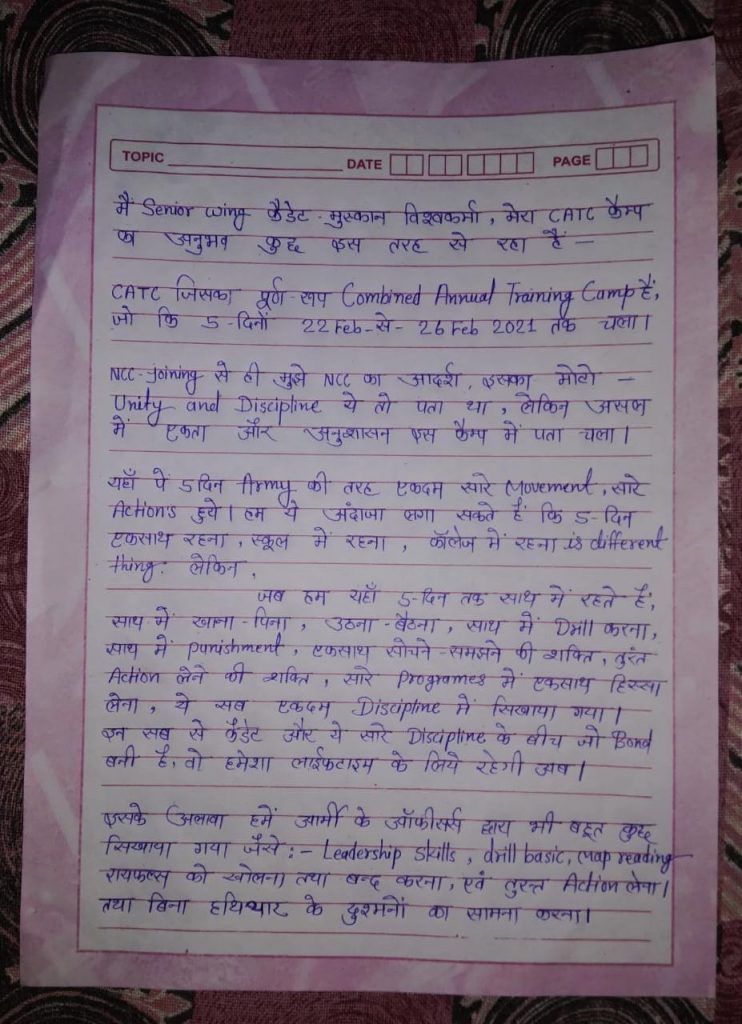 TOPIC DATE PAGE
मैं Senior wing कैडेट - मुस्कान विश्वकर्मा, मेरा CATC कैम्प
का अनुभव कुछ इस तरह से रहा हैं —
CATC जिसका पूर्ण-रूप Combined Annual Training Camp हैं,
जो कि 5-दिनों 22 Feb-से- 26 Feb 2021 तक चला।
NCC-joining से ही मुझे NCC का आदर्श, इसका मोटो —
Unity and Discipline ये तो पता था, लेकिन असल
में एकता और अनुशासन इस कैम्प में पता चला।
यहाँ पे 5 दिन Army की तरह एकदम सारे Movement, सारे
Action's हुये। हम ये अंदाजा लगा सकते हैं कि 5-दिन
एकसाथ रहना, स्कूल में रहना, कॉलेज में रहना is different
thing: लेकिन,
जब हम यहाँ 5-दिन तक साथ में रहते हैं,
साथ में खाना-पिना, उठना-बैठना, साथ में Drill करना,
साथ में punishment, एकसाथ सोचने-समझने की शक्ति, तुरंत
Action लेने की शक्ति, सारे Programes में एकसाथ हिस्सा
लेना, ये सब एकदम Discipline में सिखाया गया।
इन सब से कैडेट और ये सारे Discipline के बीच जो Bond
बनी है, वो हमेशा लाईफटाइम के लिये रहेगी अब।
इसके अलावा हमें आर्मी के ऑफीसर्स द्वारा भी बहूत कुछ
सिखाया गया जैसे :- Leadership skills, drill basic, map reading
रायफल्स को खोलना तथा बन्द करना, एवं तुरन्त Action लेना।
तथा बिना हथियार के दुश्मनों का सामना करना।